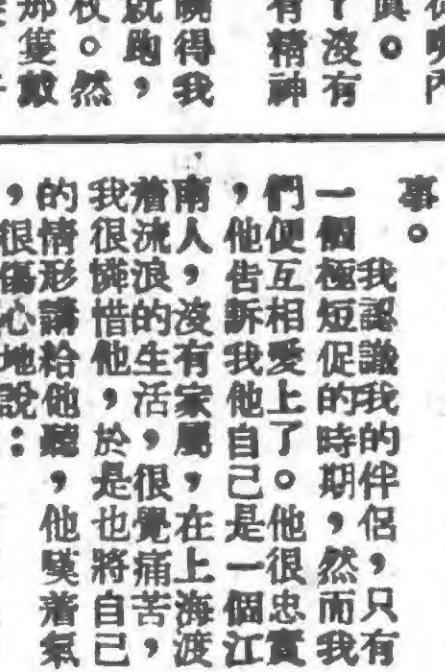 ？沒有
有精神
曉得我
就跑，
枚。然
那隻戴
事。
我認識我的伴侶，只有
一個極短促的時期，然而我
們便互相愛上了。他很忠實
，他告訴我他自己是一個江
南人，沒有家屬，在上海渡
着流浪的生活，很覺痛苦，
我很憐惜他，於是也將自己
的情形講給他聽，他嘆着氣
，很傷心地說：